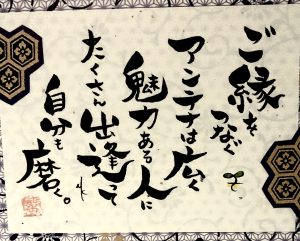 ご縁を
つなぐ
アンテナは広く
魅力ある人に
たくさん出逢って
自分も磨く。